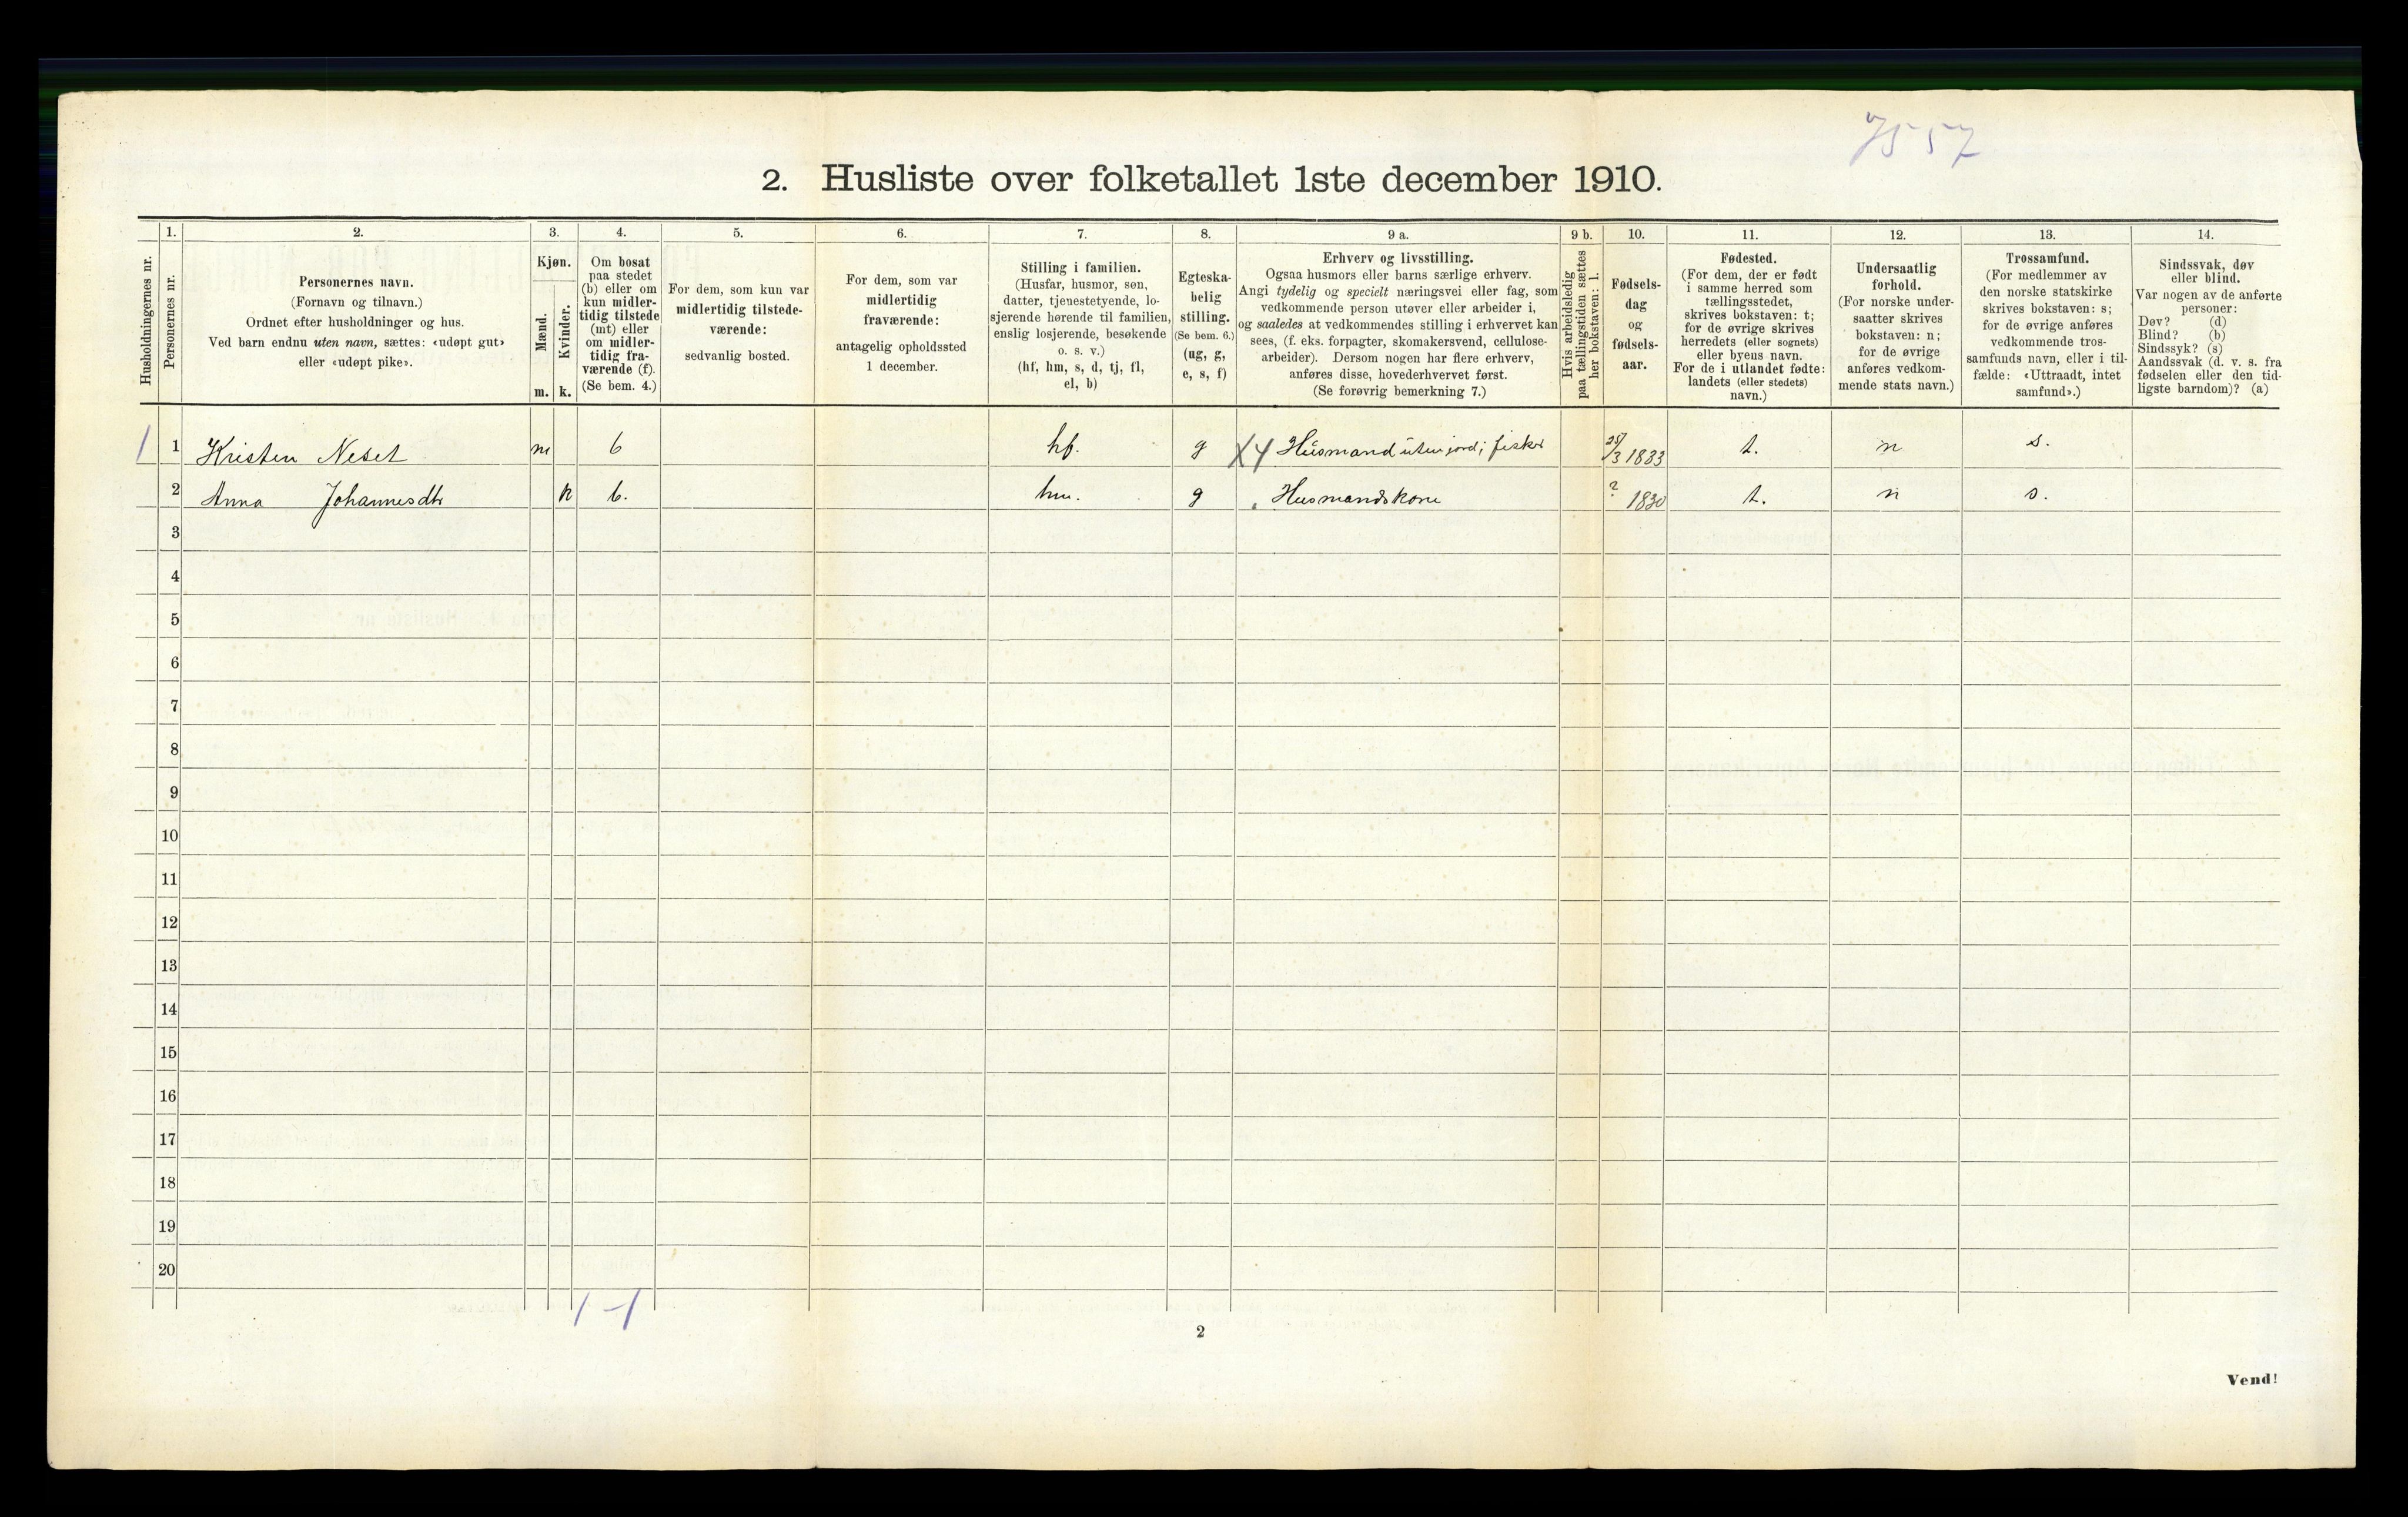 7557
2. Husliste over folketallet 1ste december 1910.
Husholdningernes nr.
1.
Personernes nr.
2.
Personernes navn.
(Fornavn og tilnavn.)
Ordnet efter husholdninger og hus.
Ved barn endnu uten navn, sættes: «udøpt gut»
eller «udøpt pike».
3.
Kjøn.
Mænd.
m.
Kvinder.
k.
4.
Om bosat
paa stedet
(b) eller om
kun midler-
tidig tilstede
(mt) eller
om midler-
tidig fra-
værende (f).
(Se bem. 4.)
5.
For dem, som kun var
midlertidig tilstede-
værende:
sedvanlig bosted.
6.
For dem, som var
midlertidig
fraværende:
antagelig opholdssted
1 december.
7.
Stilling i familien.
(Husfar, husmor, søn,
datter, tjenestetyende, lo-
sjerende hørende til familien,
enslig losjerende, besøkende
o. s. v.)
(hf, hm, s, d, tj, fl,
el, b)
8.
Egteska-
belig
stilling.
(Se bem. 6.)
(ug, g,
e, s, f)
9 a.
Erhverv og livsstilling.
Ogsaa husmors eller barns særlige erhverv.
Angi tydelig og specielt næringsvei eller fag, som
vedkommende person utøver eller arbeider i,
og saaledes at vedkommendes stilling i erhvervet kan
sees, (f. eks. forpagter, skomakersvend, cellulose-
arbeider). Dersom nogen har flere erhverv,
anføres disse, hovederhvervet først.
(Se forøvrig bemerkning 7.)
9 b.
Hvis arbeidsledig
paa tællingstiden sættes
her bokstaven: l.
10.
Fødsels-
dag
og
fødsels-
aar.
11.
Fødested.
(For dem, der er født
i samme herred som
tællingsstedet,
skrives bokstaven: t;
for de øvrige skrives
herredets (eller sognets)
eller byens navn.
For de i utlandet fødte:
landets (eller stedets)
navn.)
12.
Undersaatlig
forhold.
(For norske under-
saatter skrives
bokstaven: n;
for de øvrige
anføres vedkom-
mende stats navn.)
13.
Trossamfund.
(For medlemmer av
den norske statskirke
skrives bokstaven: s;
for de øvrige anføres
vedkommende tros-
samfunds navn, eller i til-
fælde: «Uttraadt, intet
samfund».)
14.
Sindssvak, døv
eller blind.
Var nogen av de anførte
personer:
Døv? (d)
Blind? (b)
Sindssyk? (s)
Aandssvak (d. v. s. fra
fødselen eller den tid-
ligste barndom)? (a)
1 1 Kristen Neset m b hf. g X4 Husmand uten jord; fisker 25/3 1833 t. n s.
2 Anna Johannesdtr k b. hm. g Husmandskone ? 1830 t. n s.
3
4
5
6
7
8
9
10
11
12
13
14
15
16
17
18
19
20
1 - 1
2
Vend!